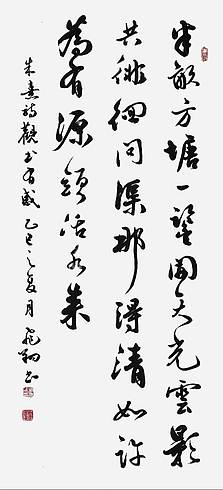 半畝方塘一鑒開天光雲影
共徘徊問渠那得清如許
為有源頭活水來
朱熹詩觀书有感乙巳之夏月